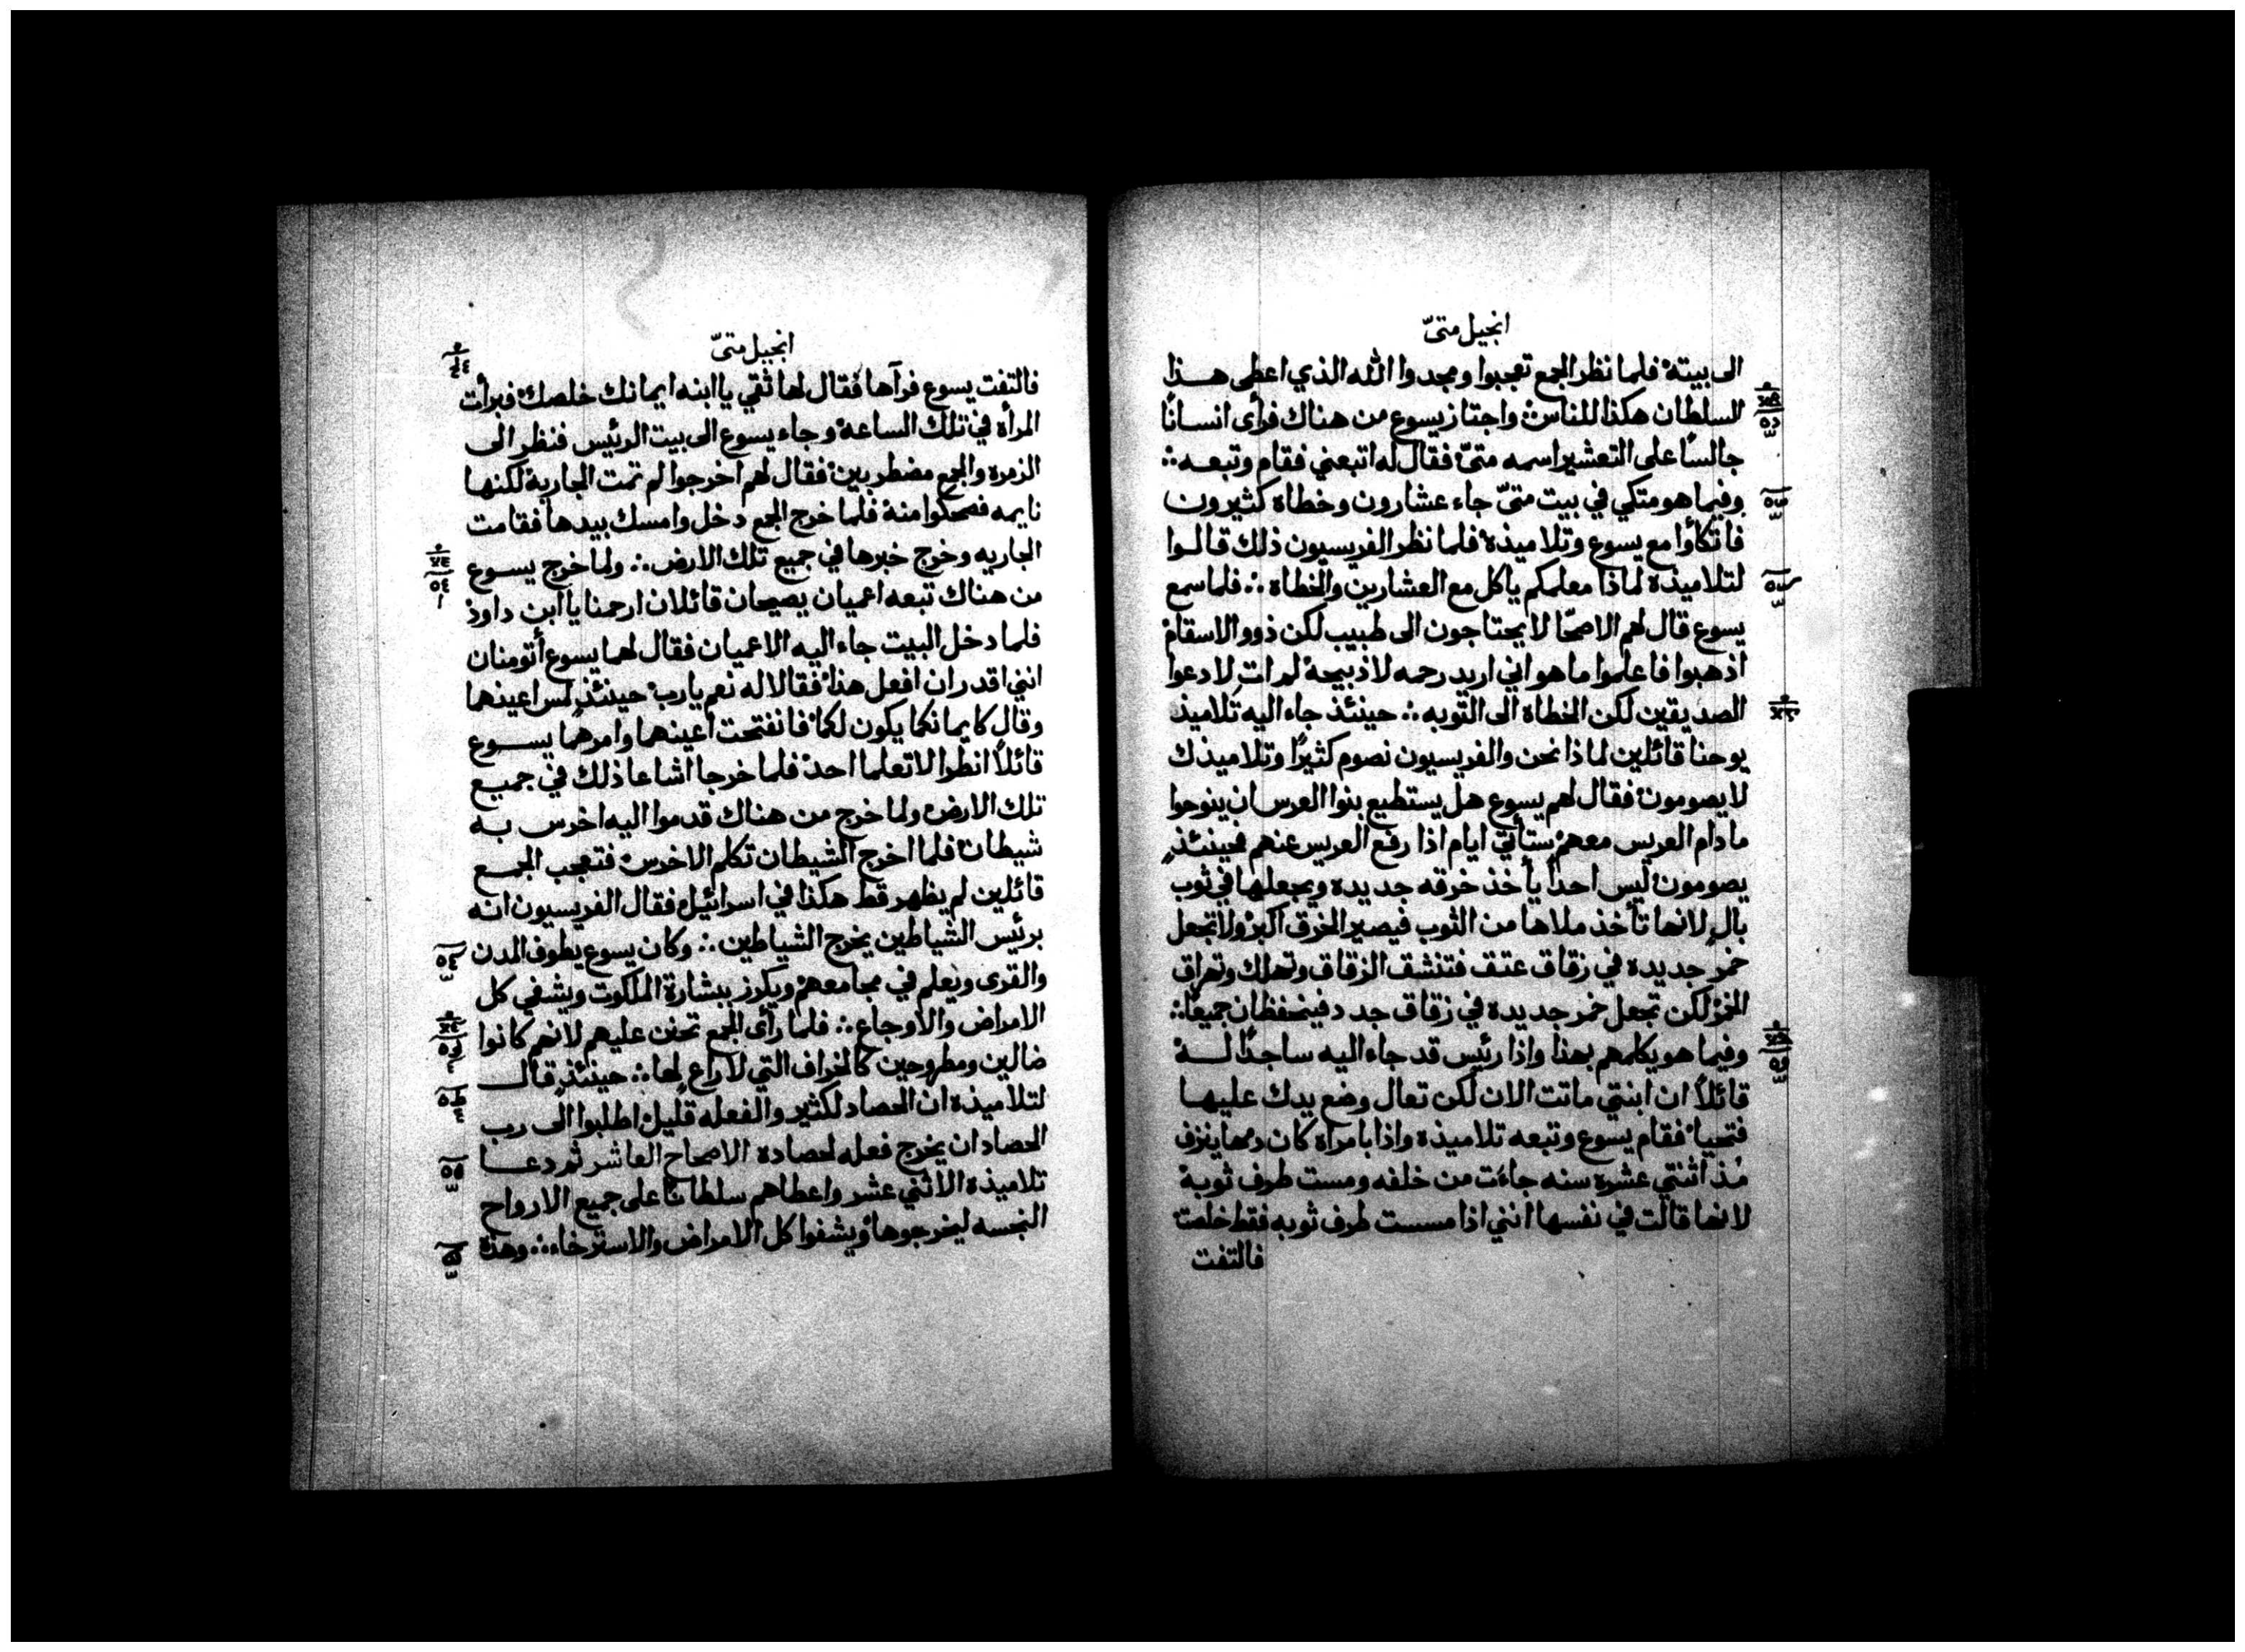 انجيل متىّ
الى بيته فلما نظر الجمع تعجبوا ومجدوا الله الذي اعطى هذا
السلطان هكذا للناس واجتاز يسوع من هناك فرأى انسانًا
جالسًا على التعشير اسمه متىّ فقال له اتبعني فقام وتبعه
وفيما هو متكي في بيت متىّ جاء عشارون وخطاة كثيرون
فاتكأوا مع يسوع وتلاميذه فلما نظر الفريسيون ذلك قالوا
لتلاميذه لماذا معلمكم ياكل مع العشارين والخطاة ∴ فلما سمع
يسوع قال لهم الاصحّا لا يحتاجون الى طبيب لكن ذوو الاسقام
اذهبوا فاعلموا ما هو اني اريد رحمه لا ذبيحة لم ات لادعوا
الصديقين لكن الخطاة الى التوبه ∴ حينئذ جاء اليه تلاميذ
يوحنا قائلين لماذا نحن والفريسيون نصوم كثيرًا وتلاميذك
لا يصومون فقال لهم يسوع هل يستطيع بنوا العرس ان ينوحوا
ما دام العريس معهم ستأتي ايام اذا رفع العريس عنهم فحينئذٍ
يصومون ليس احدًا يأخذ خرقه جديده ويجعلها في ثوب
بالٍ لانها تأخذ ملاها من الثوب فيصير الخرق اكبر ولا تجعل
خمر جديده في زقاق عتق فتنشق الزقاق وتهلك وتهراق
الخمر لكن تجعل خمر جديده في زقاق جدد فينحفظان جميعًا ∴
وفيما هو يكلمهم بهذا واذا رئيس قد جاء اليه ساجدًا له
قائلاً ان ابنتي ماتت الان لكن تعال وضع يدك عليها
فتحيا فقام يسوع وتبعه تلاميذه واذا بامراة كان دمها ينزف
مُذ اثنتي عشره سنه جاءت من خلفه ومست طرف ثوبه
لانها قالت في نفسها انني اذا مسست طرف ثوبه فقط خلصت
فالتفت
انجيل متىّ
فالتفت يسوع فرآها فقال لها ثقي يا ابنه ايمانك خلصك فبرأت
المرأة في تلك الساعة وجاء يسوع الى بيت الرئيس فنظر الى
الزمره والجمع مضطربين فقال لهم اخرجوا لم تمت الجارية لكنها
نايمه فضحكوا منه فلما خرج الجمع دخل وامسك بيدها فقامت
الجاريه وخرج خبرها في جميع تلك الارض ∴ ولما خرج يسوع
من هناك تبعه اعميان يصيحان قائلان ارحمنا يا ابن داود
فلما دخل البيت جاء اليه الاعميان فقال لهما يسوع أتومنان
انني اقدر ان افعل هذا فقالا له نعم يا رب حينئذٍ لمس اعينهما
وقال كايمانكما يكون لكما فانفتحت اعينهما وامرهما يسوع
قائلاً انظرا لا تعلما احد فلما خرجا اشاعا ذلك في جميع
تلك الارض ولما خرج من هناك قدموا اليه اخرس به
شيطان فلما اخرج الشيطان تكلم الاخرس فتعجب الجمع
قائلين لم يظهر قط هكذا في اسرائيل فقال الفريسيون انه
برئيس الشياطين يخرج الشياطين ∴ وكان يسوع يطوف المدن
والقرى ويعلم في مجامعهم ويكرز ببشارة الملكوت ويشفي كل
الامراض والاوجاع ∴ فلما رأى الجمع تحنن عليهم لانهم كانوا
ضالين ومطروحين كالخراف التي لا راعٍ لها ∴ حينئذٍ قال
لتلاميذه ان الحصاد لكثير والفعله قليل اطلبوا الى رب
الحصاد ان يخرج فعله لحصاده الاصحاح العاشر ثم دعا
تلاميذه الاثني عشر واعطاهم سلطانًا على جميع الارواح
النجسه ليخرجوها ويشفوا كل الامراض والاسترخاء ∴ وهذه